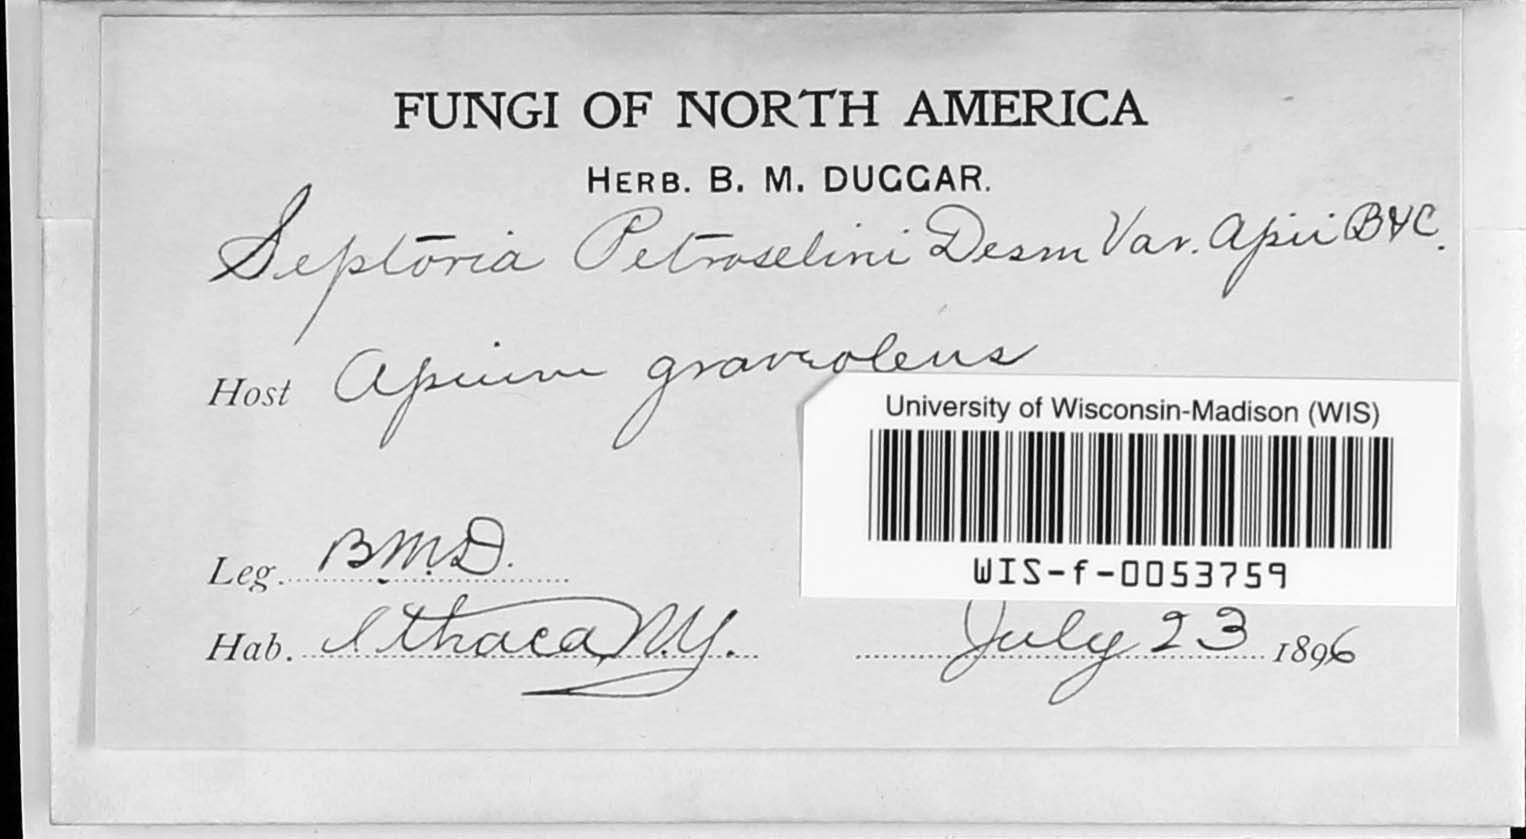 FUNGI OF NORTH AMERICA
HERB. B. M. DUGGAR.
Septoria Petroselini Desm Var. Apii B&C.
Host Apium graveolens
University of Wisconsin-Madison (WIS)
WIS-f-0053759
Leg. B.M.D.
Hab. Ithaca, N.Y. July 23 1896